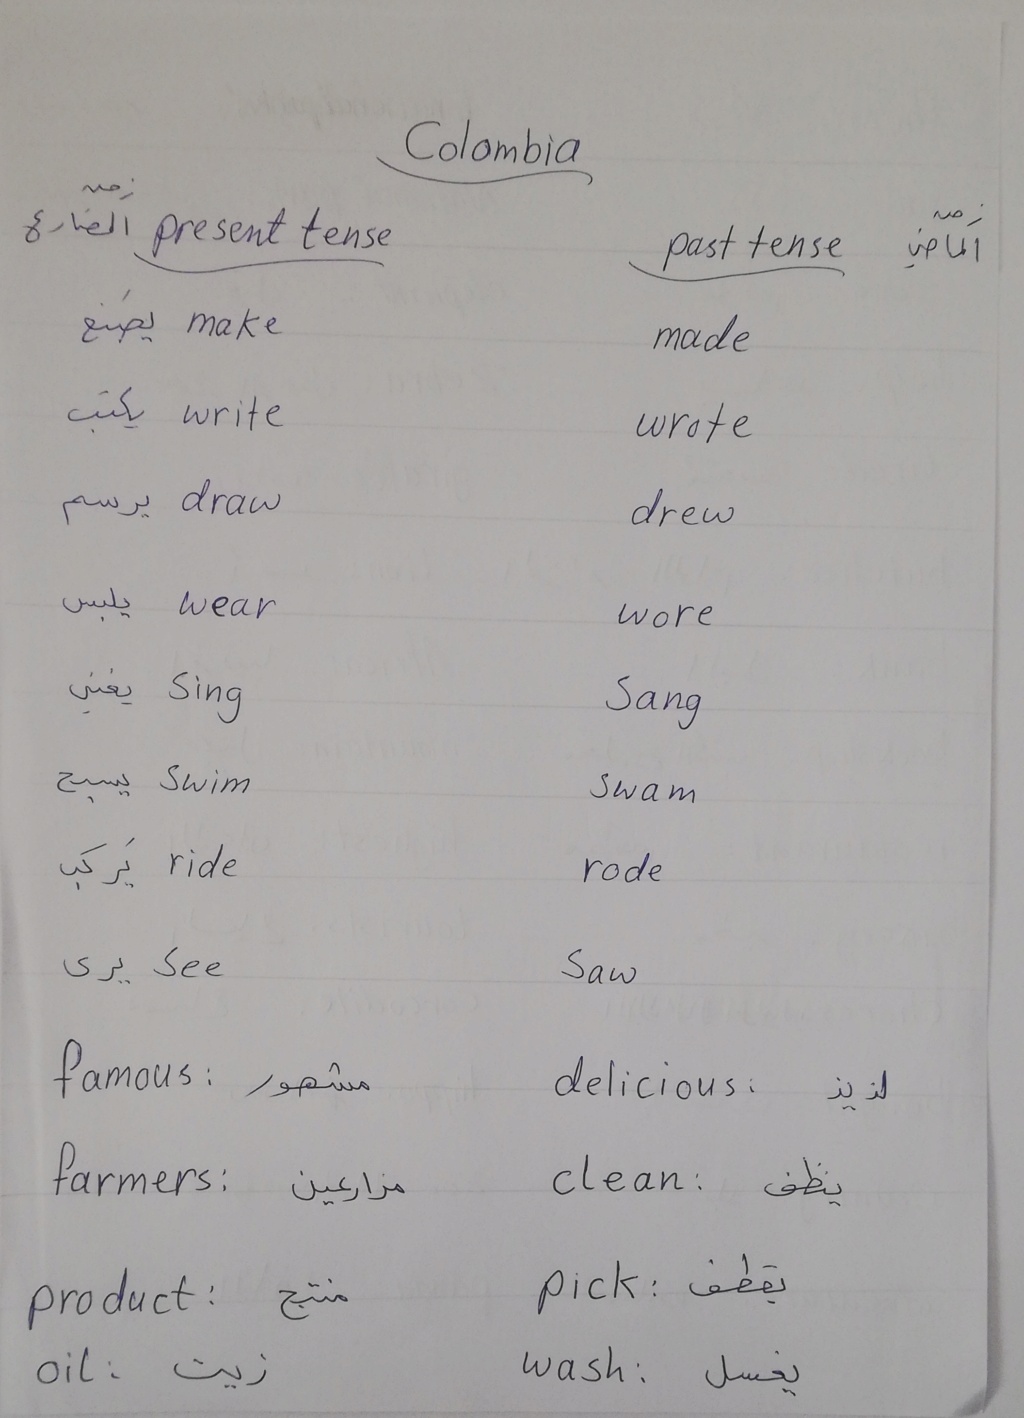 Colombia
زمن المضارع present tense past tense زمن الماضي
يصَنع make made
يكتب write wrote
يرسم draw drew
يلبس wear wore
يغني Sing Sang
يسبح swim swam
يَركب ride rode
يرى See Saw
famous: مشهور delicious: لذيذ
farmers: مزارعين clean: ينظف
product: منتج pick: يقطف
oil: زيت wash: يغسل